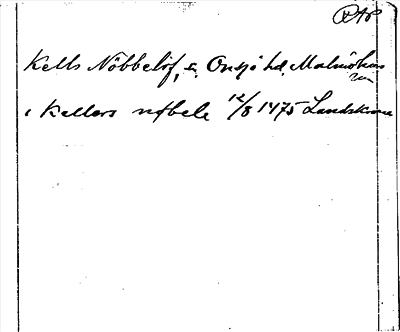 RAP
Kells Nöbbelöf, s. Onsjö hd. Malmöhus
län
i Kellers nøbele 12/8 1475 Landskrona